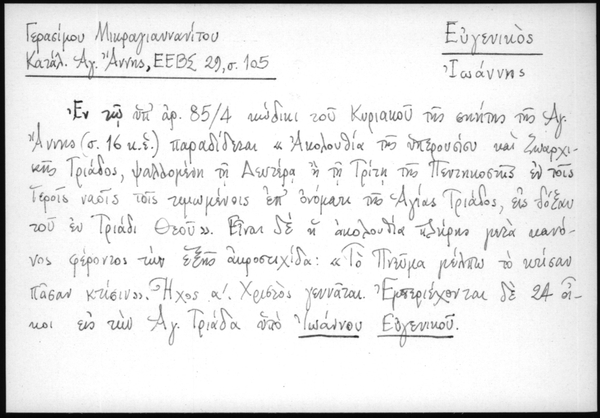 Γερασίμου Μικραγιαννανίτου
Κατάλ. Ἁγ. Ἄννης, ΕΕΒΣ 29, σ. 105
Εὐγενικὸς
Ἰωάννης
Ἐν τῷ ὑπ' ἀρ. 85/4 κώδικι τοῦ Κυριακοῦ τῆς σκήτης τῆς Ἁγ.
Ἄννης (σ. 16 κ.ἑ.) παραδίδεται « Ἀκολουθία τῆς ὑπερουσίου καὶ ζωαρχι-
κῆς Τριάδος, ψαλλομένη τῇ Δευτέρᾳ ἢ τῇ Τρίτῃ τῆς Πεντηκοστῆς ἐν τοῖς
ἱεροῖς ναοῖς τοῖς τιμωμένοις ἐπ' ὀνόματι τῆς Ἁγίας Τριάδος, εἰς δόξαν
τοῦ ἐν Τριάδι Θεοῦ». Εἶναι δὲ ἡ ἀκολουθία πλήρης μετὰ κανό-
νος φέροντος τὴν ἑξῆς ἀκροστιχίδα: «Τὸ Πνεῦμα μέλπω τὸ κτίσαν
πᾶσαν κτίσιν». Ἦχος α΄. Χριστὸς γεννᾶται. Ἐμπεριέχονται δὲ 24 οἶ-
κοι εἰς τὴν Ἁγ. Τριάδα ὑπὸ Ἰωάννου Εὐγενικοῦ.